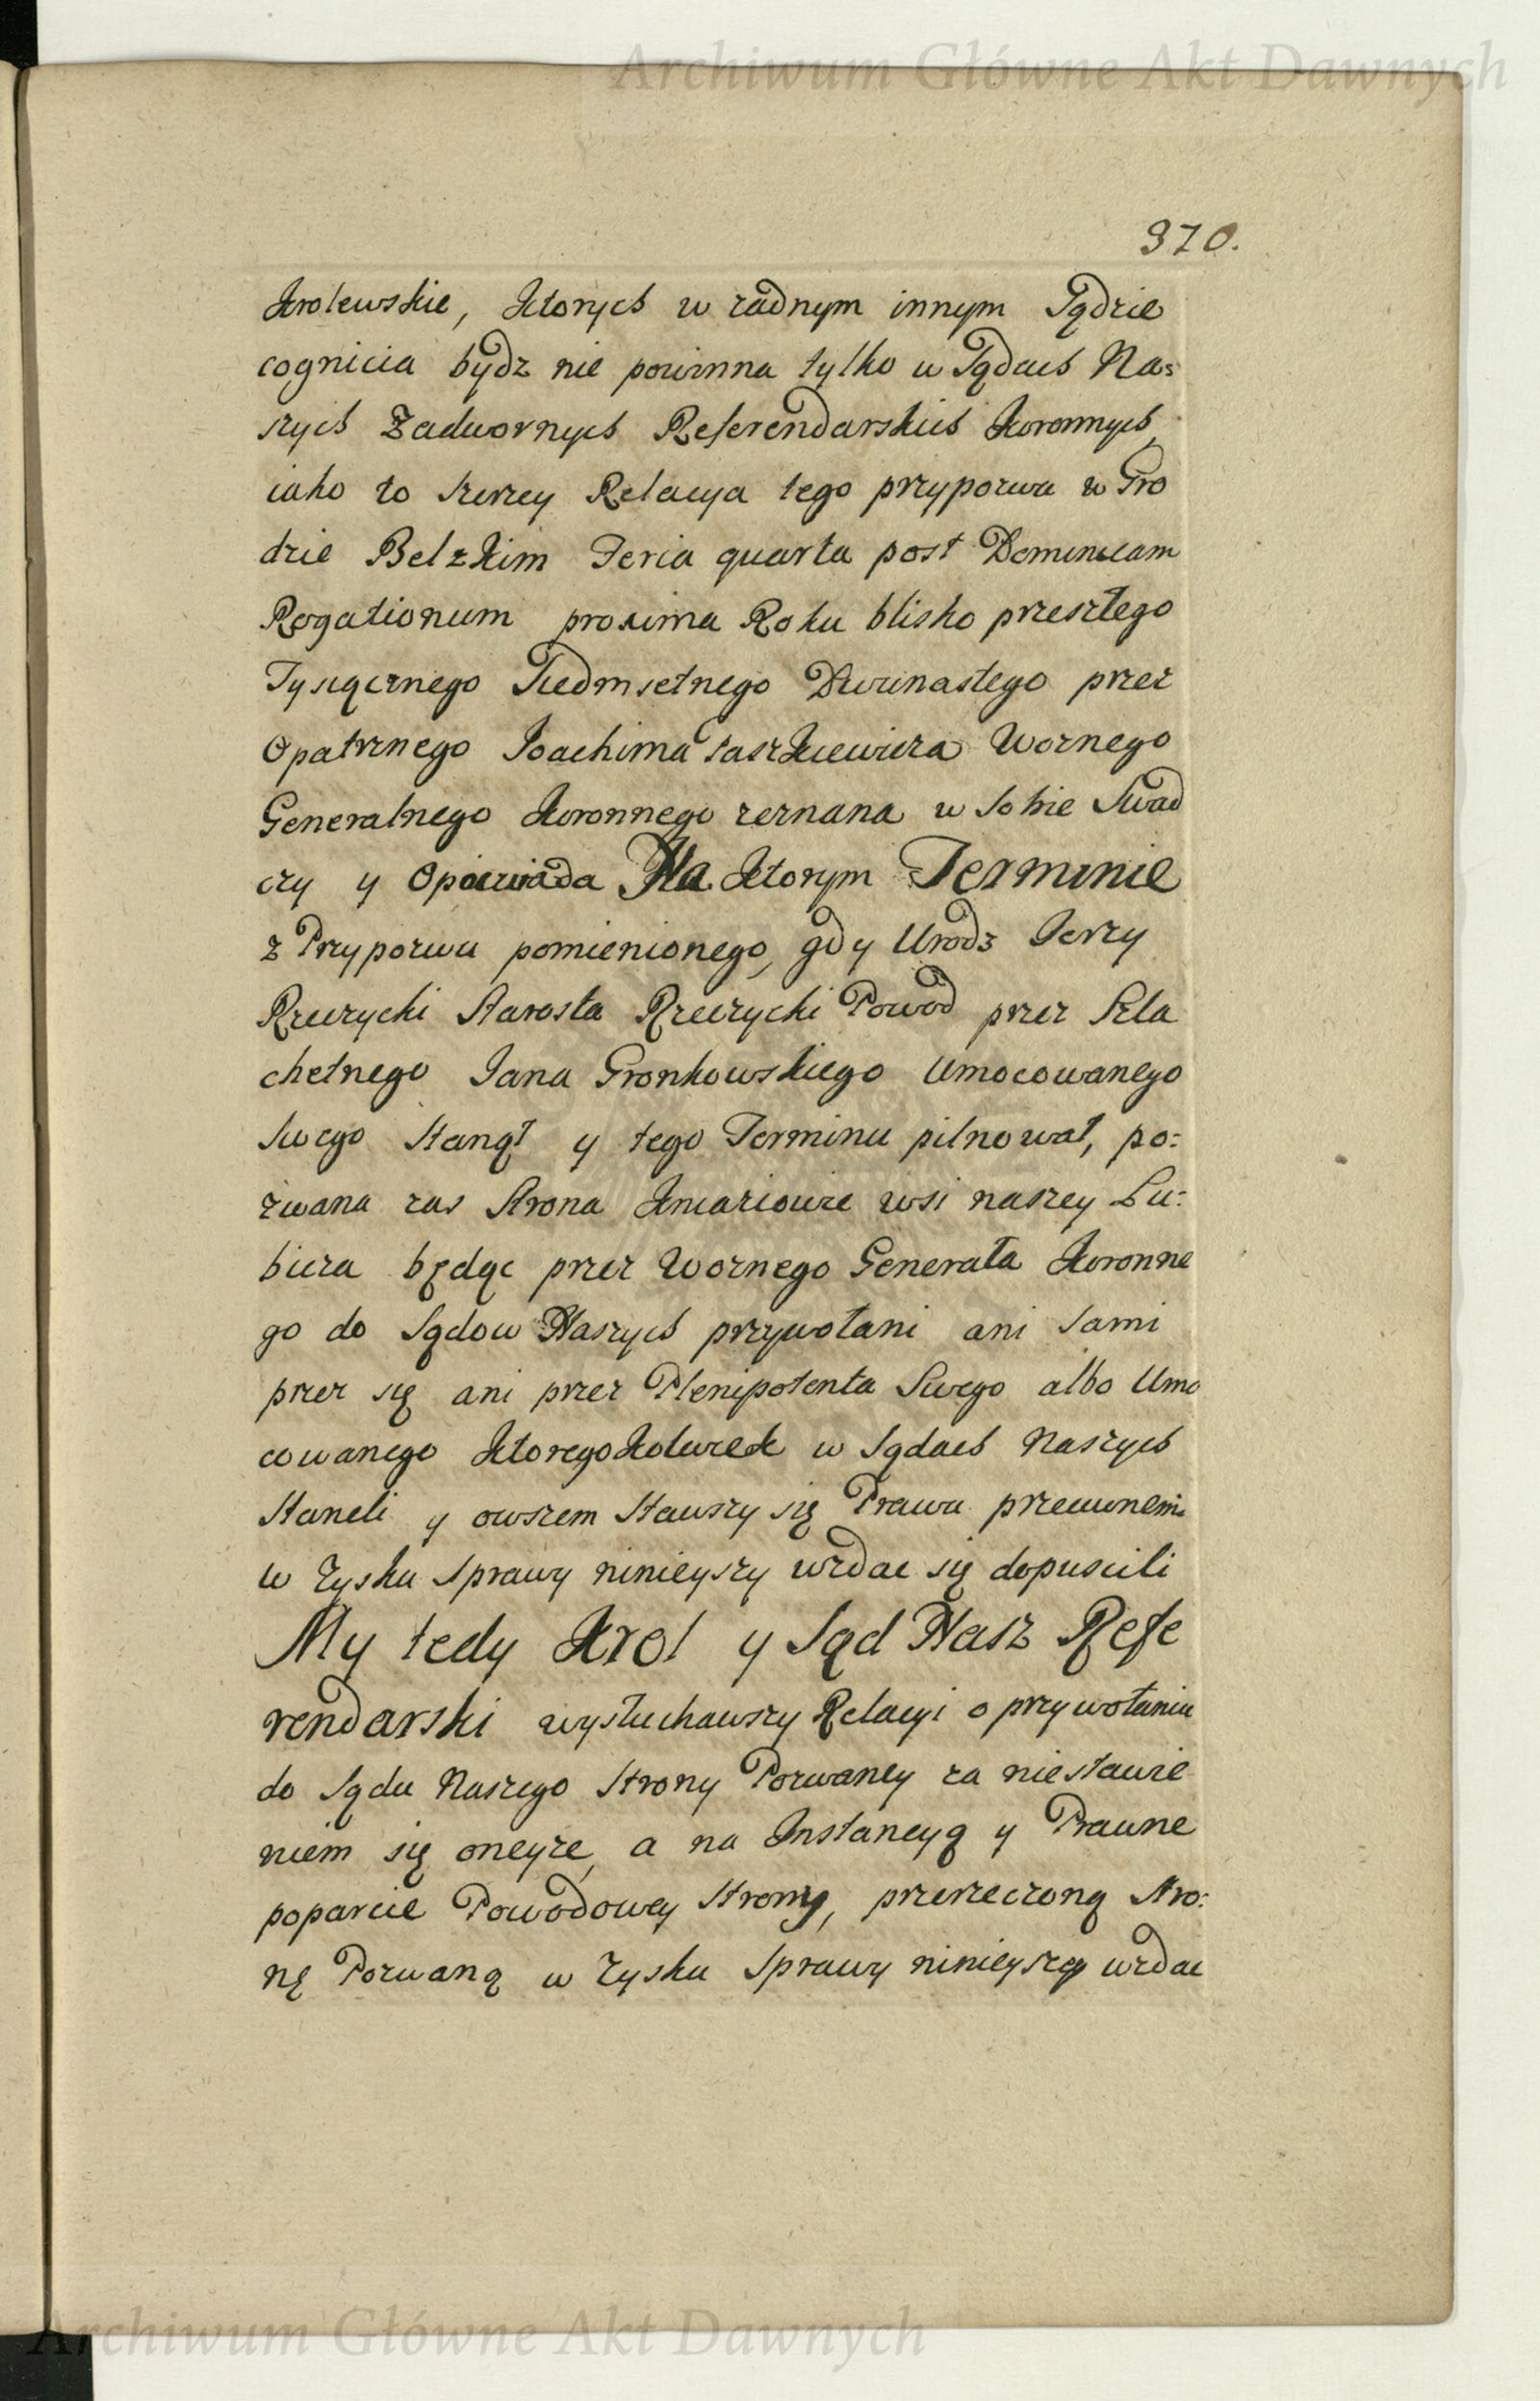 Archiwum Główne Akt Dawnych
370.
Krolewskie, Ktorych w zadnym innym Sądzie
cognicia bydz nie powinna tylko w Sądach Na:
szych Zadwornych Referendarskich Koronnych,
iako to szerzey Relacya tego przypozwu w Gro
dzie Belzkim Feria quarta post Dominicam
Rogationum proxima Roku blisko przeszłego
Tysiącznego Siedmsetnego Dwunastego przez
Opatrznego Joachima Saszkiewicza Woznego
Generalnego Koronnego zeznana w sobie Swad
czy y Opowiada Na Ktorym Terminie
z Przypozwu pomienionego, gdy Urodz Jerzy
Rzeczycki Starosta Rzeczycki Powod przez Szla
chetnego Jana Gronkowskiego Umocowanego
swego stanął y tego Terminu pilnował, po:
zwana zas Strona Kmieciowie wsi naszey Lu:
bicza będąc przez Woznego Generała Koronne
go do Sądow Naszych przywołani ani sami
przez się ani przez Plenipotenta Swego albo Umo
cowanego KtoregoKolwiek w Sądach Naszych
Staneli y owszem Stawszy się Prawu przeciwnemi
w Zysku Sprawy ninieyszy wzdac się dopuscili
My tedy Krol y Sąd Nasz Refe
rendarski wysłuchawszy Relacyi o przywołaniu
do Sądu Naszego Strony Pozwaney za niestawie
niem się oneyze, a na Instancyą y Prawne
poparcie Powodowey Strony, przerzeczoną Stro:
nę Pozwaną w Zysku Sprawy ninieyszey wzdac
Archiwum Główne Akt Dawnych